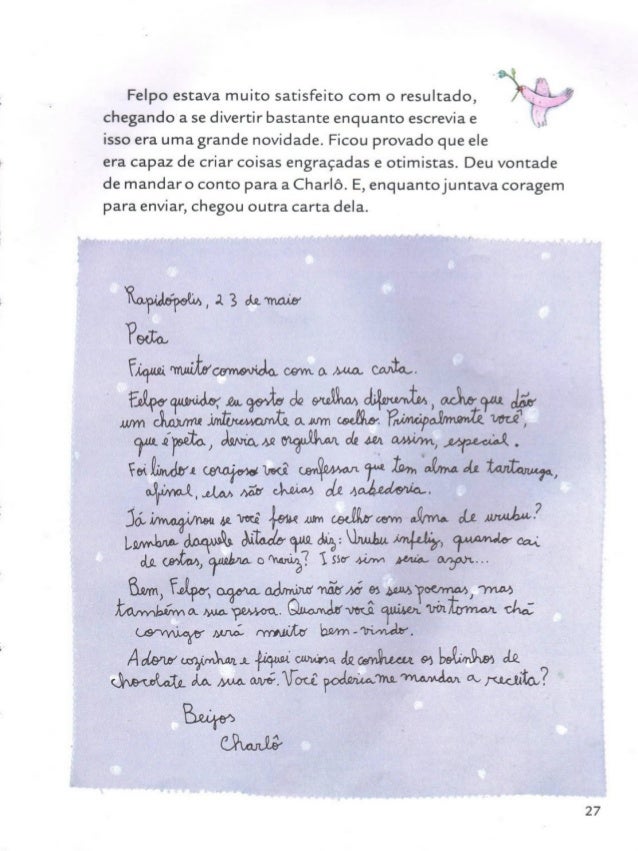 Felpo estava muito satisfeito com o resultado,
chegando a se divertir bastante enquanto escrevia e
isso era uma grande novidade. Ficou provado que ele
era capaz de criar coisas engraçadas e otimistas. Deu vontade
de mandar o conto para a Charlô. E, enquanto juntava coragem
para enviar, chegou outra carta dela.
Rapidópolis, 23 de maio
Poeta
Fiquei muito comovida com a sua carta.
Felpo querido, eu gosto de orelhas diferentes, acho que dão
um charme interessante a um coelho. Principalmente você,
que é poeta, devia se orgulhar de ser assim, especial.
Foi lindo e corajoso você confessar que tem alma de tartaruga,
afinal, elas são cheias de sabedoria.
Já imaginou se você fosse um coelho com alma de urubu?
Lembra daquele ditado que diz: Urubu infeliz, quando cai
de costas, quebra o nariz? Isso sim seria azar...
Bem, Felpo, agora admiro não só os seus poemas, mas
também a sua pessoa. Quando você quiser vir tomar chá
comigo será muito bem-vindo.
Adoro cozinhar e fiquei curiosa de conhecer os bolinhos de
chocolate da sua avó. Você poderia me mandar a receita?
Beijos
Charlô
27